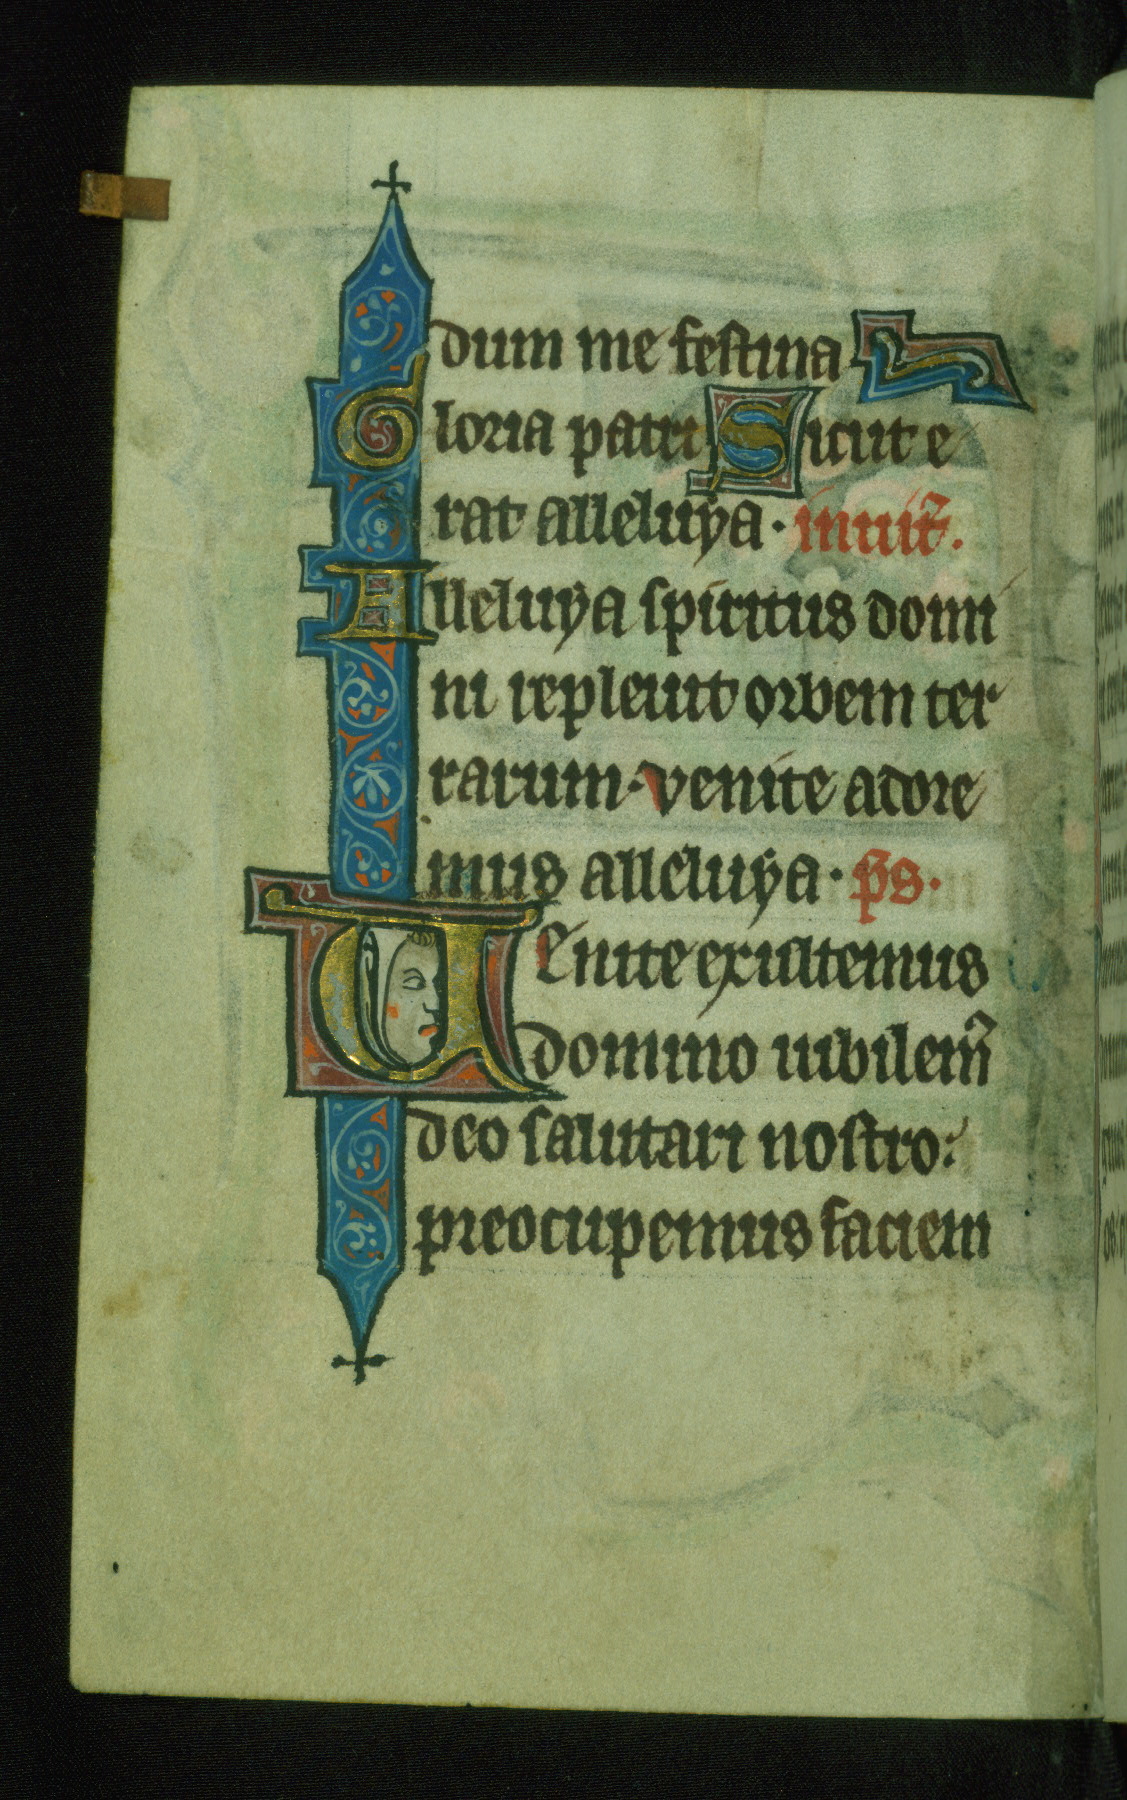 dum me festina
Gloria patri Sicut e
rat alleluẏa · inuit̃.
Alleluẏa spiritus domi
ni repleuit orbem ter
rarum · venite adore
mus alleluẏa · p̃s ·
UEnite exultemus
domino iubilem̃
deo salutari nostro :
preocupemus faciem